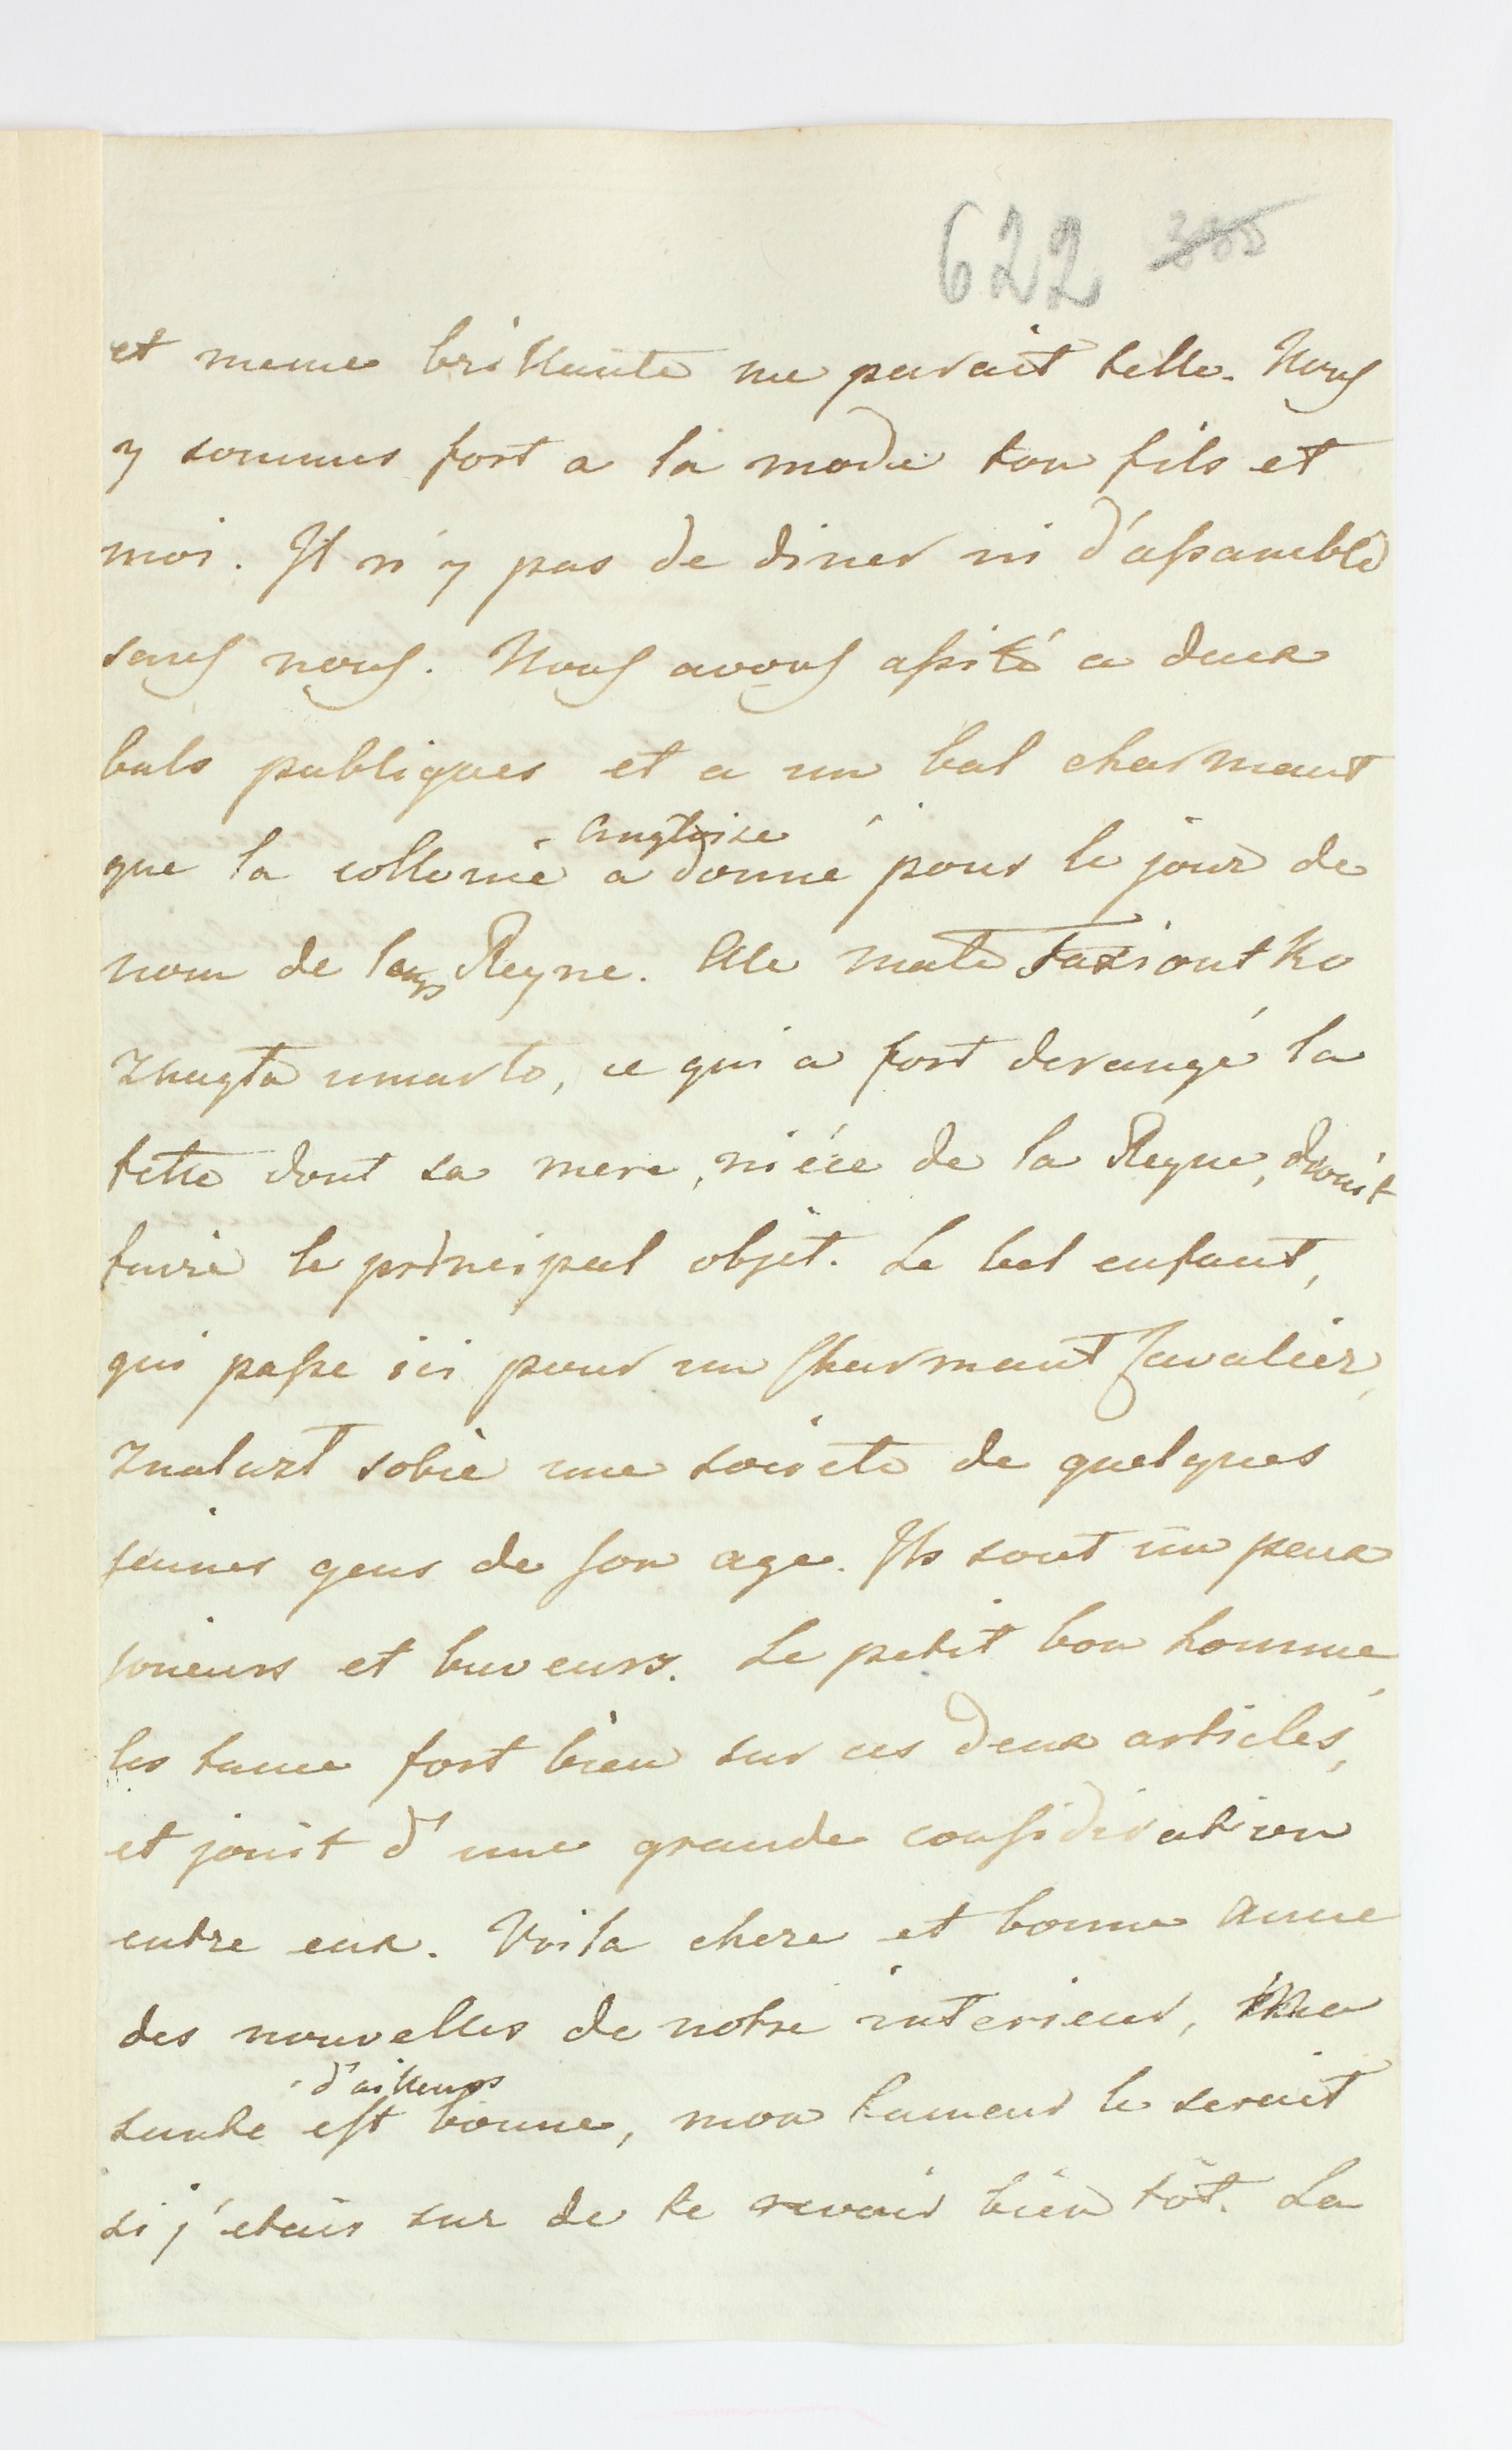 622 385
et meme brillante me parait telle. Nous
y sommes fort a la mode ton fils et
moi. Il n'y pas de diner ni d'assamblé
sans nous. Nous avons assité a deux
bals publiques et a un bal charmant
Angloise
que la collonie a donné pour le jour de
nom de la Reyne. Ale mate
umarło, ce qui a fort derangé la
fette dont sa mere, niéce de la Reyne, devoit
faire le principal objet. Le bel enfant,
qui passe ici pour un charmant Cavalier,
znalazł sobie une societe de quelques
jeunes gens de son age. Ils sont un peux
joueurs et buveurs. Le petit bon homme
les tance fort bien sur ces deux articles,
et jouit d'une grande consideration
entre eux. Voila chere et bonne Anne
des nouvelles de notre interieur, Ma
d'ailleurs
sante est bonne, mon humeur le serait
si j'etais sur de te revoir bien tôt. La